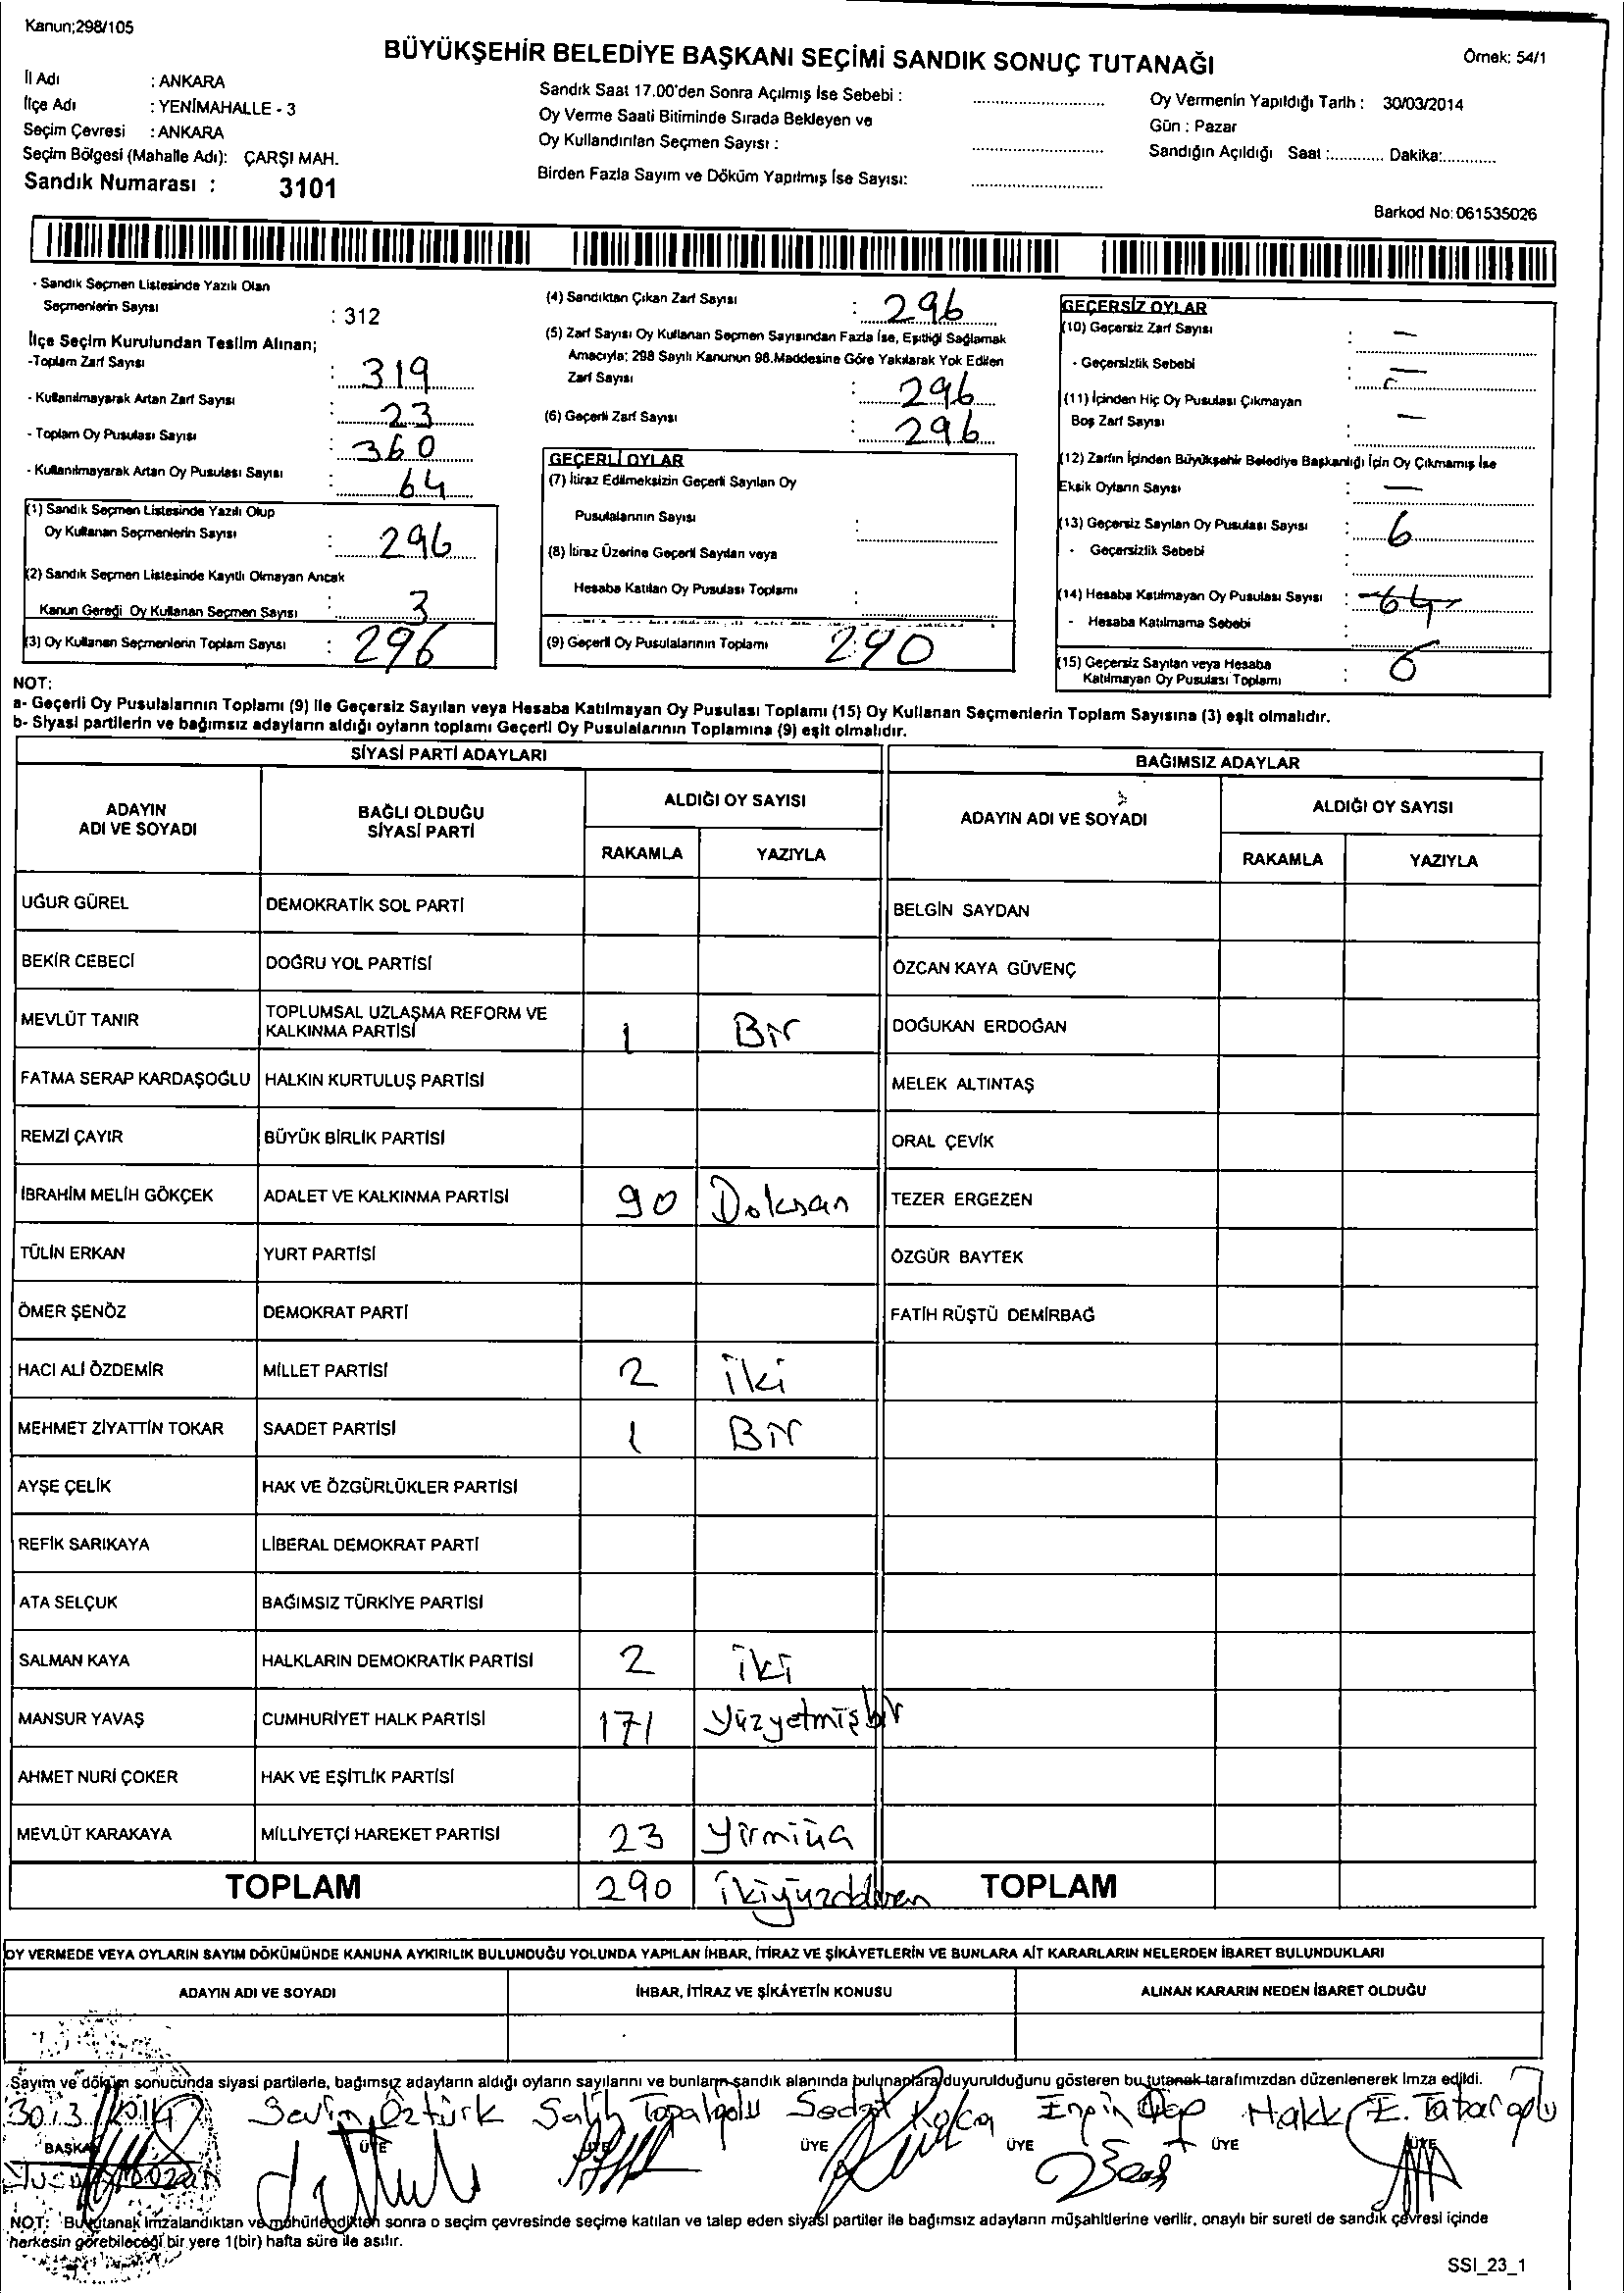 Kanun;298/105
BÜYÜKŞEHİR BELEDİYE BAŞKANI SEÇİMİ SANDIK SONUÇ TUTANAĞI
Örnek: 54/1
İl Adı : ANKARA
İlçe Adı : YENİMAHALLE - 3
Seçim Çevresi : ANKARA
Seçim Bölgesi (Mahalle Adı): ÇARŞI MAH.
Sandık Numarası : 3101
Sandık Saat 17.00'den Sonra Açılmış İse Sebebi :
Oy Verme Saati Bitiminde Sırada Bekleyen ve
Oy Kullandırılan Seçmen Sayısı :
Birden Fazla Sayım ve Döküm Yapılmış İse Sayısı:
Oy Vermenin Yapıldığı Tarih : 30/03/2014
Gün : Pazar
Sandığın Açıldığı Saat :............ Dakika:............
Barkod No: 061535026
- Sandık Seçmen Listesinde Yazılı Olan
Seçmenlerin Sayısı : 312
İlçe Seçim Kurulundan Teslim Alınan;
-Toplam Zarf Sayısı : 319
- Kullanılmayarak Artan Zarf Sayısı : 23
- Toplam Oy Pusulası Sayısı : 360
- Kullanılmayarak Artan Oy Pusulası Sayısı : 64
(1) Sandık Seçmen Listesinde Yazılı Olup
Oy Kullanan Seçmenlerin Sayısı : 296
(2) Sandık Seçmen Listesinde Kayıtlı Olmayan Ancak
Kanun Gereği Oy Kullanan Seçmen Sayısı : 3
(3) Oy Kullanan Seçmenlerin Toplam Sayısı : 296
(4) Sandıktan Çıkan Zarf Sayısı : 296
(5) Zarf Sayısı Oy Kullanan Seçmen Sayısından Fazla İse, Eşitliği Sağlamak
Amacıyla; 298 Sayılı Kanunun 98.Maddesine Göre Yakılarak Yok Edilen
Zarf Sayısı : 296
(6) Geçerli Zarf Sayısı : 296
GEÇERLİ OYLAR
(7) İtiraz Edilmeksizin Geçerli Sayılan Oy
Pusulalarının Sayısı :
(8) İtiraz Üzerine Geçerli Sayılan veya
Hesaba Katılan Oy Pusulası Toplamı :
(9) Geçerli Oy Pusulalarının Toplamı 290
GEÇERSİZ OYLAR
(10) Geçersiz Zarf Sayısı : —
- Geçersizlik Sebebi : —
(11) İçinden Hiç Oy Pusulası Çıkmayan
Boş Zarf Sayısı : —
(12) Zarfın İçinden Büyükşehir Belediye Başkanlığı İçin Oy Çıkmamış İse
Eksik Oyların Sayısı : —
(13) Geçersiz Sayılan Oy Pusulası Sayısı : 6
- Geçersizlik Sebebi :
(14) Hesaba Katılmayan Oy Pusulası Sayısı : 64
- Hesaba Katılmama Sebebi :
(15) Geçersiz Sayılan veya Hesaba
Katılmayan Oy Pusulası Toplamı : 6
NOT:
a- Geçerli Oy Pusulalarının Toplamı (9) İle Geçersiz Sayılan veya Hesaba Katılmayan Oy Pusulası Toplamı (15) Oy Kullanan Seçmenlerin Toplam Sayısına (3) eşit olmalıdır.
b- Siyasi partilerin ve bağımsız adayların aldığı oyların toplamı Geçerli Oy Pusulalarının Toplamına (9) eşit olmalıdır.
SİYASİ PARTİ ADAYLARI
BAĞIMSIZ ADAYLAR
ADAYIN ADI VE SOYADI
BAĞLI OLDUĞU SİYASİ PARTİ
ALDIĞI OY SAYISI
RAKAMLA YAZIYLA
ADAYIN ADI VE SOYADI
ALDIĞI OY SAYISI
RAKAMLA YAZIYLA
UĞUR GÜREL DEMOKRATİK SOL PARTİ BELGİN SAYDAN
BEKİR CEBECİ DOĞRU YOL PARTİSİ ÖZCAN KAYA GÜVENÇ
MEVLÜT TANIR TOPLUMSAL UZLAŞMA REFORM VE KALKINMA PARTİSİ 1 Bir DOĞUKAN ERDOĞAN
FATMA SERAP KARDAŞOĞLU HALKIN KURTULUŞ PARTİSİ MELEK ALTINTAŞ
REMZİ ÇAYIR BÜYÜK BİRLİK PARTİSİ ORAL ÇEVİK
İBRAHİM MELİH GÖKÇEK ADALET VE KALKINMA PARTİSİ 90 Doksan TEZER ERGEZEN
TÜLİN ERKAN YURT PARTİSİ ÖZGÜR BAYTEK
ÖMER ŞENÖZ DEMOKRAT PARTİ FATİH RÜŞTÜ DEMİRBAĞ
HACI ALİ ÖZDEMİR MİLLET PARTİSİ 2 iki
MEHMET ZİYATTİN TOKAR SAADET PARTİSİ 1 Bir
AYŞE ÇELİK HAK VE ÖZGÜRLÜKLER PARTİSİ
REFİK SARIKAYA LİBERAL DEMOKRAT PARTİ
ATA SELÇUK BAĞIMSIZ TÜRKİYE PARTİSİ
SALMAN KAYA HALKLARIN DEMOKRATİK PARTİSİ 2 iki
MANSUR YAVAŞ CUMHURİYET HALK PARTİSİ 171 yüzyetmişbir
AHMET NURİ ÇOKER HAK VE EŞİTLİK PARTİSİ
MEVLÜT KARAKAYA MİLLİYETÇİ HAREKET PARTİSİ 23 yirmiüç
TOPLAM 290 ikiyüzdoksan TOPLAM
OY VERMEDE VEYA OYLARIN SAYIM DÖKÜMÜNDE KANUNA AYKIRILIK BULUNDUĞU YOLUNDA YAPILAN İHBAR, İTİRAZ VE ŞİKÂYETLERİN VE BUNLARA AİT KARARLARIN NELERDEN İBARET BULUNDUKLARI
ADAYIN ADI VE SOYADI İHBAR, İTİRAZ VE ŞİKÂYETİN KONUSU ALINAN KARARIN NEDEN İBARET OLDUĞU
Sayım ve döküm sonucunda siyasi partilerle, bağımsız adayların aldığı oyların sayılarını ve bunların sandık alanında bulunanlara duyurulduğunu gösteren bu tutanak tarafımızdan düzenlenerek imza edildi.
30.3.2014 Sevim Öztürk Salih Topaloğlu Sedat Hakkı E. Tataroğlu
BAŞKAN ÜYE ÜYE ÜYE ÜYE ÜYE ÜYE
NOT: Bu tutanak imzalandıktan ve mühürlendikten sonra o seçim çevresinde seçime katılan ve talep eden siyasi partiler ile bağımsız adayların müşahitlerine verilir, onaylı bir sureti de sandık çevresi içinde
herkesin görebileceği bir yere 1(bir) hafta süre ile asılır.
SSI_23_1